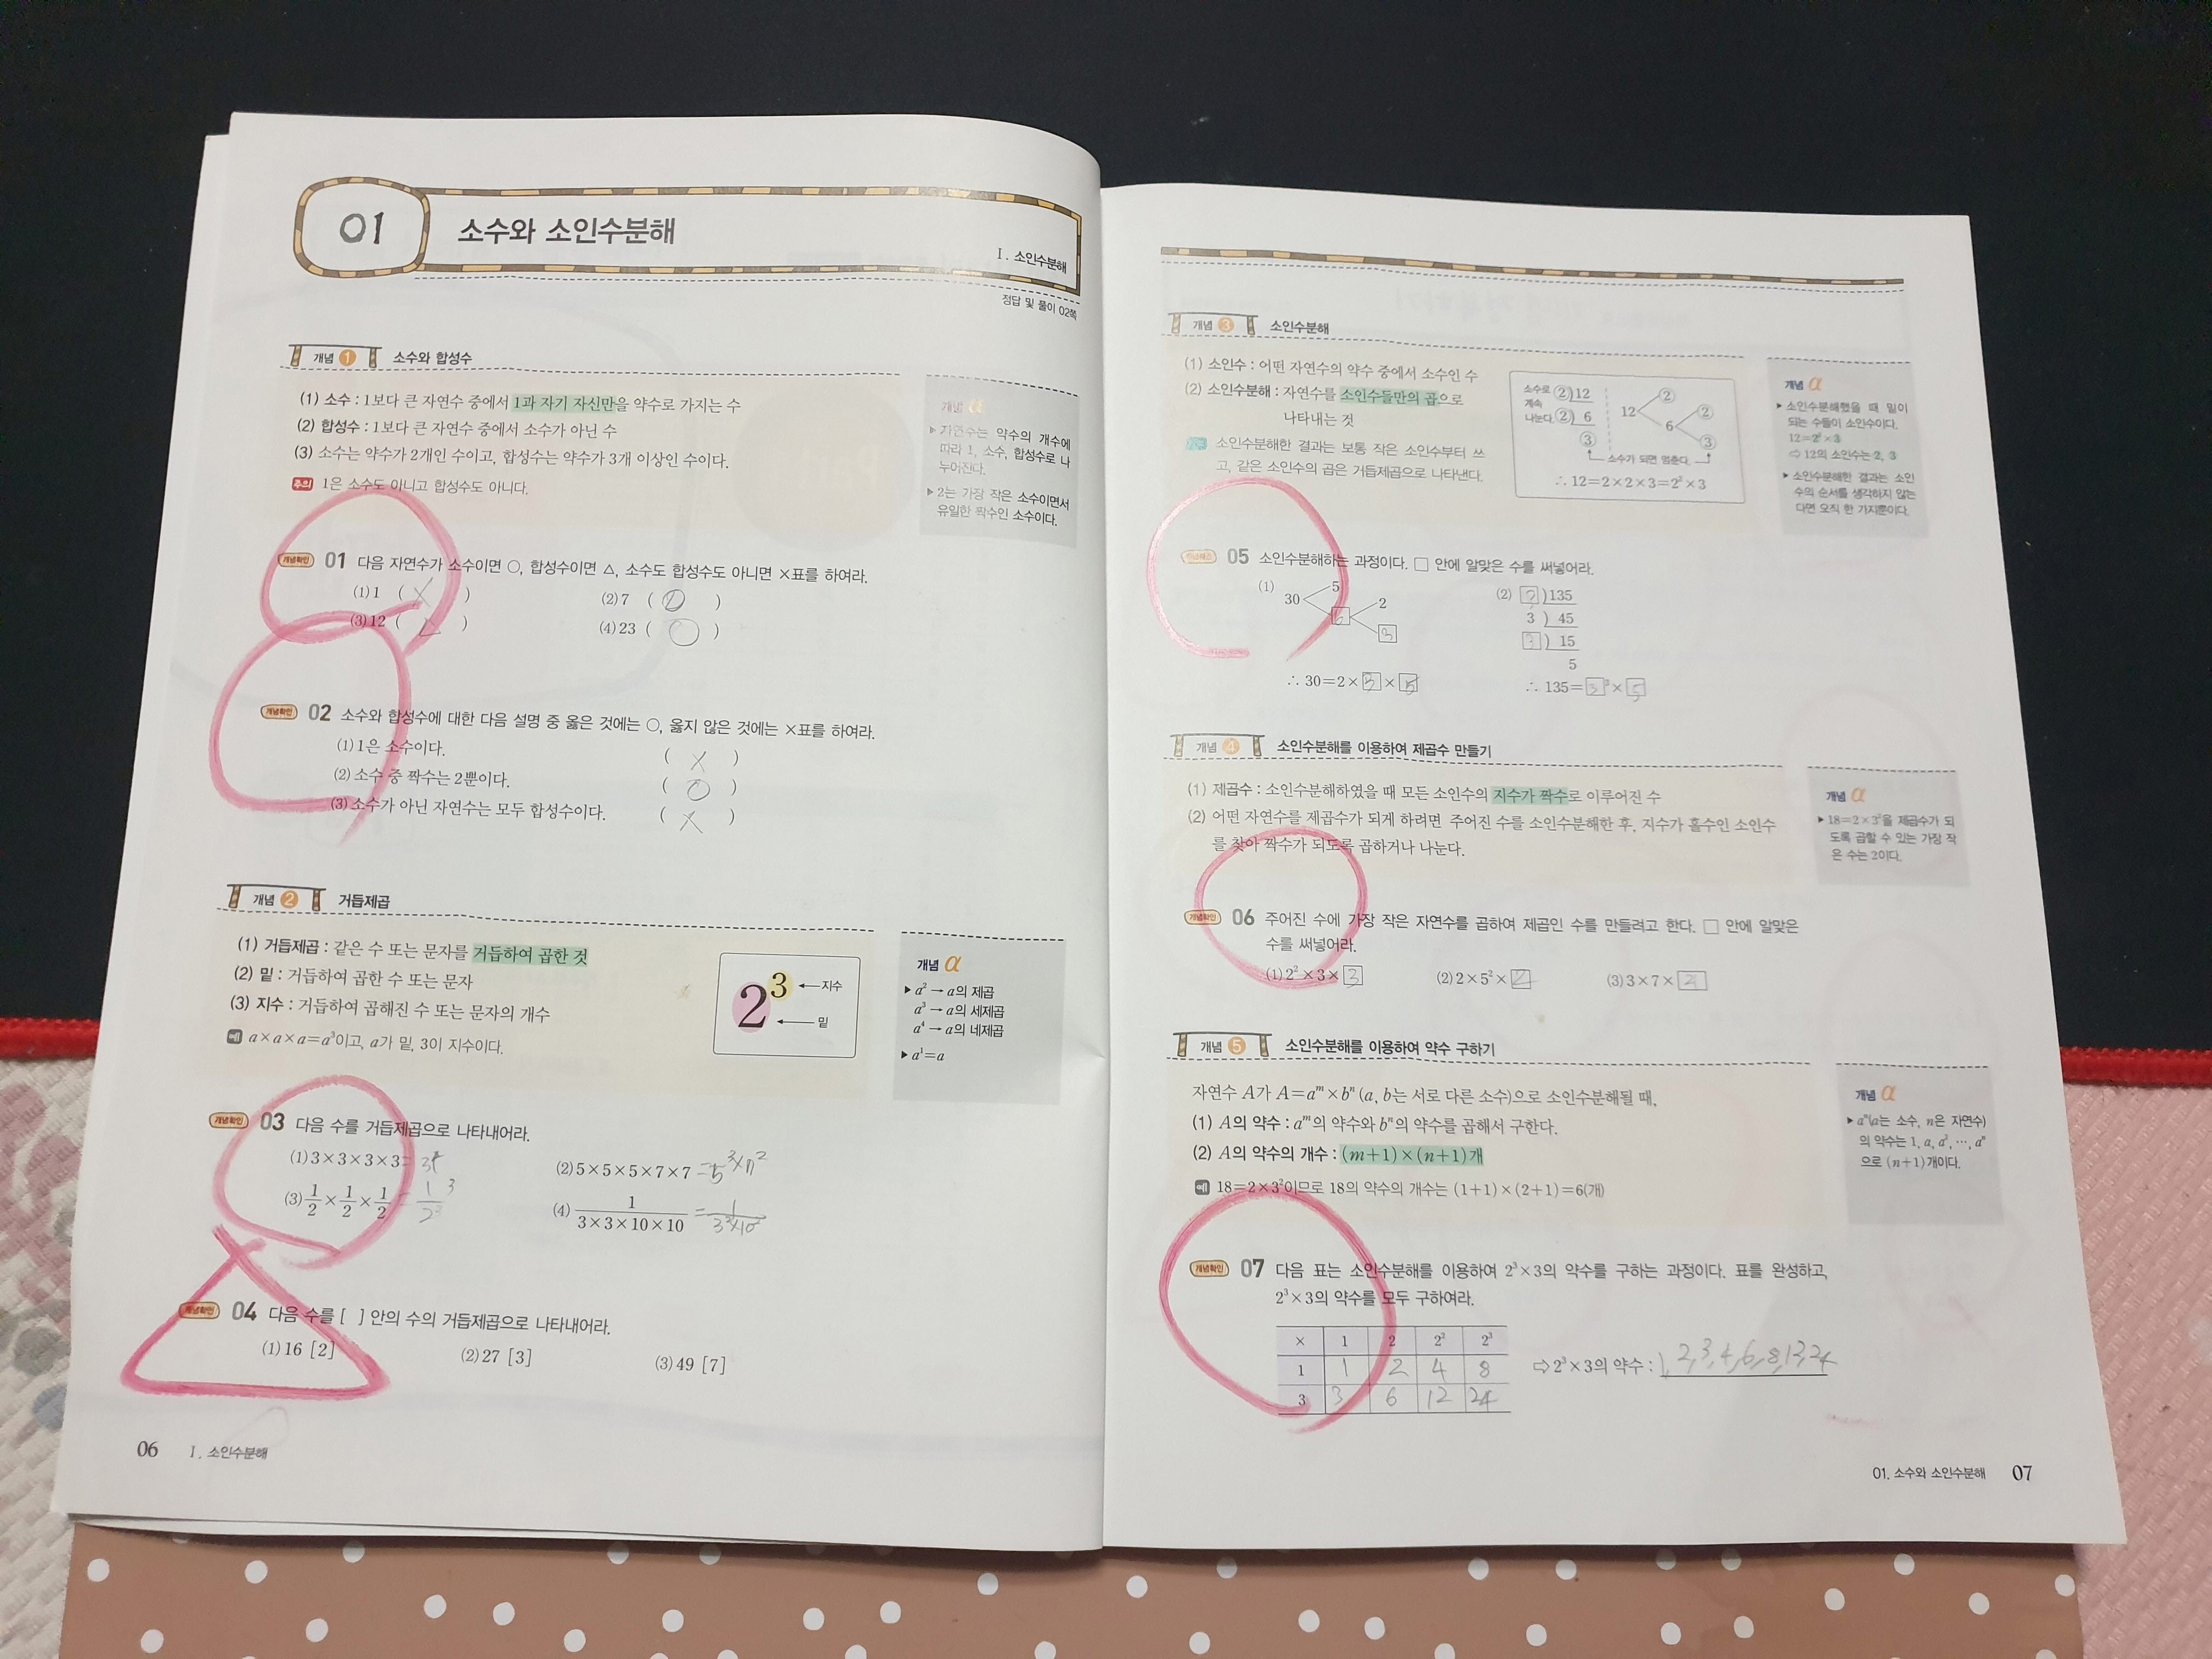 01 소수와 소인수분해
Ⅰ. 소인수분해
정답 및 풀이 02쪽
개념 1 소수와 합성수
(1) 소수 : 1보다 큰 자연수 중에서 1과 자기 자신만을 약수로 가지는 수
(2) 합성수 : 1보다 큰 자연수 중에서 소수가 아닌 수
(3) 소수는 약수가 2개인 수이고, 합성수는 약수가 3개 이상인 수이다.
주의 1은 소수도 아니고 합성수도 아니다.
개념 α
▶ 자연수는 약수의 개수에
따라 1, 소수, 합성수로 나
누어진다.
▶ 2는 가장 작은 소수이면서
유일한 짝수인 소수이다.
개념확인 01 다음 자연수가 소수이면 ○, 합성수이면 △, 소수도 합성수도 아니면 ×표를 하여라.
(1) 1 ( X ) (2) 7 ( ○ )
(3) 12 ( △ ) (4) 23 ( ○ )
개념확인 02 소수와 합성수에 대한 다음 설명 중 옳은 것에는 ○, 옳지 않은 것에는 ×표를 하여라.
(1) 1은 소수이다. ( X )
(2) 소수 중 짝수는 2뿐이다. ( ○ )
(3) 소수가 아닌 자연수는 모두 합성수이다. ( X )
개념 2 거듭제곱
(1) 거듭제곱 : 같은 수 또는 문자를 거듭하여 곱한 것
(2) 밑 : 거듭하여 곱한 수 또는 문자
(3) 지수 : 거듭하여 곱해진 수 또는 문자의 개수
예 a×a×a=a³이고, a가 밑, 3이 지수이다.
2³ ←지수
←밑
개념 α
▶ a² → a의 제곱
a³ → a의 세제곱
a⁴ → a의 네제곱
▶ a¹=a
개념확인 03 다음 수를 거듭제곱으로 나타내어라.
(1) 3×3×3×3 = 3⁴ (2) 5×5×5×7×7 = 5³×7²
(3) 1/2 × 1/2 × 1/2 = 1/2³ (4) 1/(3×3×10×10) = 1/(3²×10²)
개념확인 04 다음 수를 [ ] 안의 수의 거듭제곱으로 나타내어라.
(1) 16 [2] (2) 27 [3] (3) 49 [7]
06 Ⅰ. 소인수분해
개념 3 소인수분해
(1) 소인수 : 어떤 자연수의 약수 중에서 소수인 수
(2) 소인수분해 : 자연수를 소인수들만의 곱으로
나타내는 것
소인수분해한 결과는 보통 작은 소인수부터 쓰
고, 같은 소인수의 곱은 거듭제곱으로 나타낸다.
소수로 2)12
계속
나눈다. 2) 6
3
12 2
6 2
3
소수가 되면 멈춘다.
∴ 12=2×2×3=2²×3
개념 α
▶ 소인수분해했을 때 밑이
되는 수들이 소인수이다.
12=2²×3
⇨ 12의 소인수는 2, 3
▶ 소인수분해한 결과는 소인
수의 순서를 생각하지 않는
다면 오직 한 가지뿐이다.
05 소인수분해하는 과정이다. □ 안에 알맞은 수를 써넣어라.
(1) 30 5
6 2
3
∴ 30=2×3×5
(2) )135
3 ) 45
3 ) 15
5
∴ 135=3³×5
개념 4 소인수분해를 이용하여 제곱수 만들기
(1) 제곱수 : 소인수분해하였을 때 모든 소인수의 지수가 짝수로 이루어진 수
(2) 어떤 자연수를 제곱수가 되게 하려면 주어진 수를 소인수분해한 후, 지수가 홀수인 소인수
를 찾아 짝수가 되도록 곱하거나 나눈다.
개념 α
▶ 18=2×3²을 제곱수가 되
도록 곱할 수 있는 가장 작
은 수는 2이다.
개념확인 06 주어진 수에 가장 작은 자연수를 곱하여 제곱인 수를 만들려고 한다. □ 안에 알맞은
수를 써넣어라.
(1) 2²×3×3 (2) 2×5²×2 (3) 3×7×21
개념 5 소인수분해를 이용하여 약수 구하기
자연수 A가 A=aᵐ×bⁿ (a, b는 서로 다른 소수)으로 소인수분해될 때,
(1) A의 약수 : aᵐ의 약수와 bⁿ의 약수를 곱해서 구한다.
(2) A의 약수의 개수 : (m+1)×(n+1)개
예 18=2×3²이므로 18의 약수의 개수는 (1+1)×(2+1)=6(개)
개념 α
▶ aⁿ(a는 소수, n은 자연수)
의 약수는 1, a, a², ⋯, aⁿ
으로 (n+1)개이다.
개념확인 07 다음 표는 소인수분해를 이용하여 2³×3의 약수를 구하는 과정이다. 표를 완성하고,
2³×3의 약수를 모두 구하여라.
× 1 2 2² 2³
1 1 2 4 8
3 3 6 12 24
⇨ 2³×3의 약수 : 1, 2, 3, 4, 6, 8, 12, 24
01. 소수와 소인수분해 07